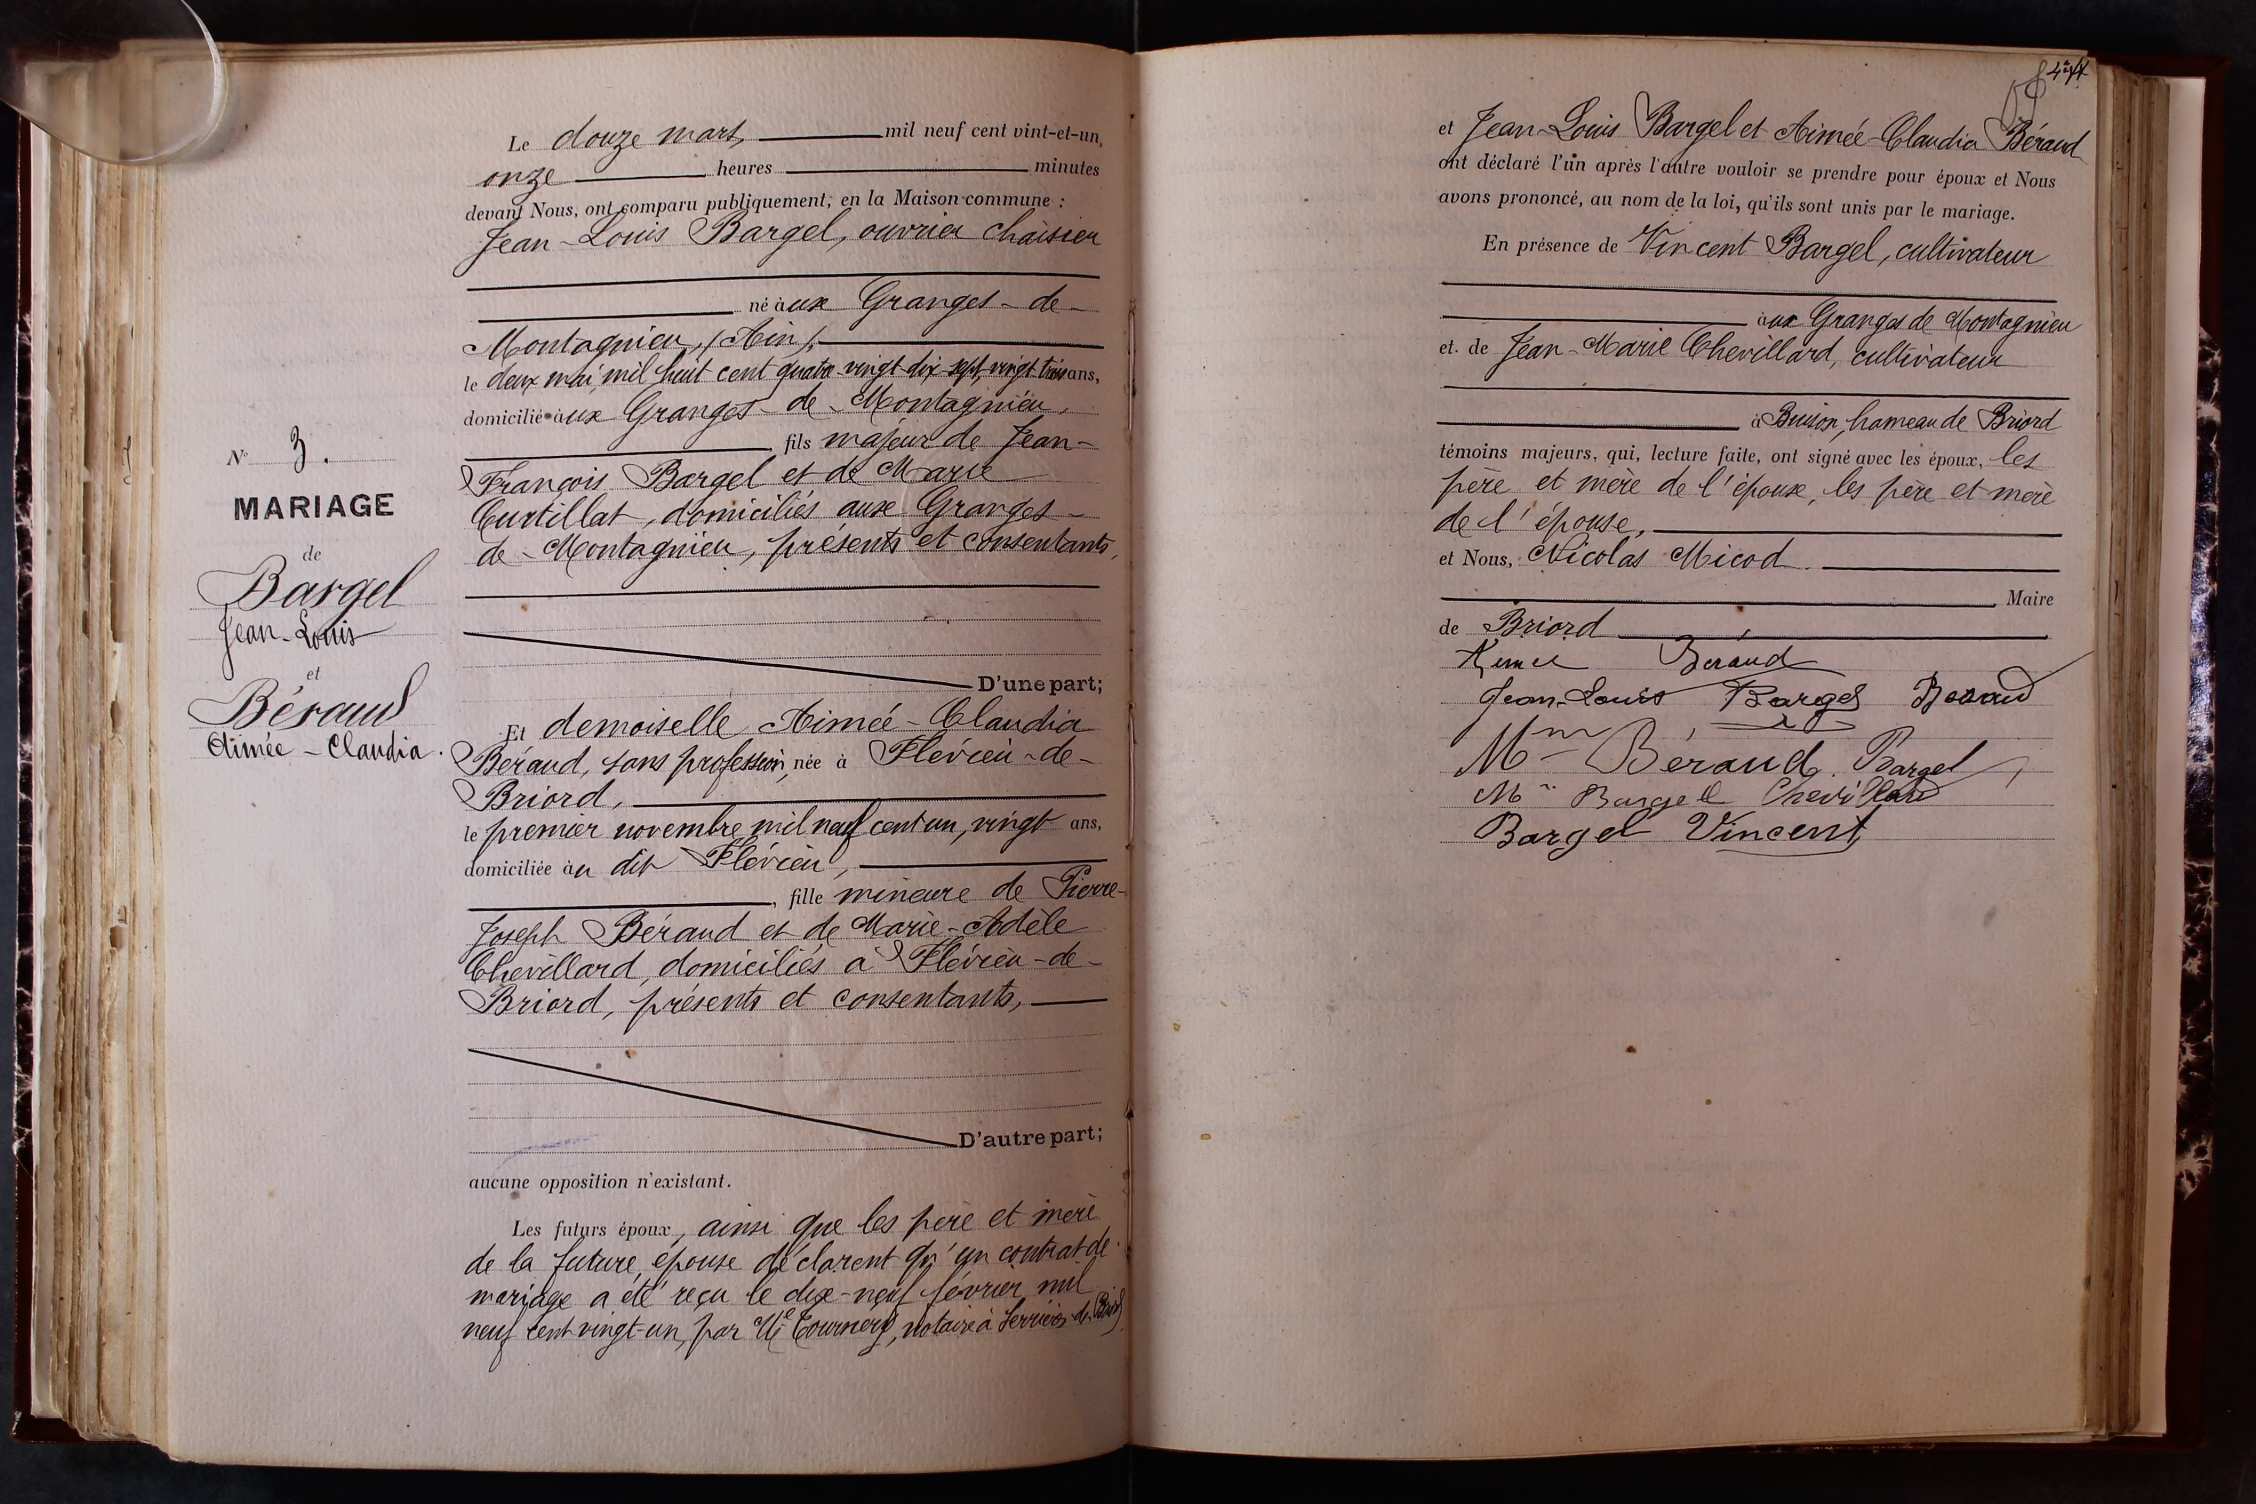 Le douze mars, mil neuf cent vint-et-un,
onze heures minutes
devant Nous, ont comparu publiquement, en la Maison commune :
Jean-Louis Bargel, ouvrier chaisier
né à aux Granges-de-
Montagnieu, (Ain),
le deux mai, mil huit cent quatre-vingt-dix-sept, vingt trois ans,
domicilié à aux Granges-de-Montagnieu,
fils majeur de Jean-
François Bargel et de Marie
Curtillat, domiciliés aux Granges-
de-Montagnieu, présents et consentants,
D'une part;
Nº 3.
MARIAGE
de
Bargel
Jean-Louis
et
Béraud
Aimée-Claudia.
Et demoiselle Aimée-Claudia
Béraud, sans profession, née à Flévieu-de-
Briord,
le premier novembre mil neuf cent un, vingt ans,
domiciliée à u dit Flévieu,
fille mineure de Pierre-
Joseph Béraud et de Marie-Adèle
Chevillard, domiciliés à Flévieu-de-
Briord, présents et consentants,
D'autre part;
aucune opposition n'existant.
Les futurs époux, ainsi que les père et mère
de la future épouse déclarent qu'un contrat de
mariage a été reçu le dix-neuf février mil
neuf cent vingt-un, par Me notaire à Serrières-de-Briord
et Jean-Louis Bargel et Aimée-Claudia Béraud
ont déclaré l'un après l'autre vouloir se prendre pour époux et Nous
avons prononcé, au nom de la loi, qu'ils sont unis par le mariage.
En présence de Vincent Bargel, cultivateur
à aux Granges de Montagnieu
et de Jean-Marie Chevillard, cultivateur
à hameau de Briord
témoins majeurs, qui, lecture faite, ont signé avec les époux, les
père et mère de l'époux, les père et mère
de l'épouse,
et Nous, Nicolas Micod
Maire
de Briord
Aimée Béraud
Jean-Louis Bargel Beraud
Mme Béraud. Bargel
Mme Bargel Chevillard
Bargel Vincent